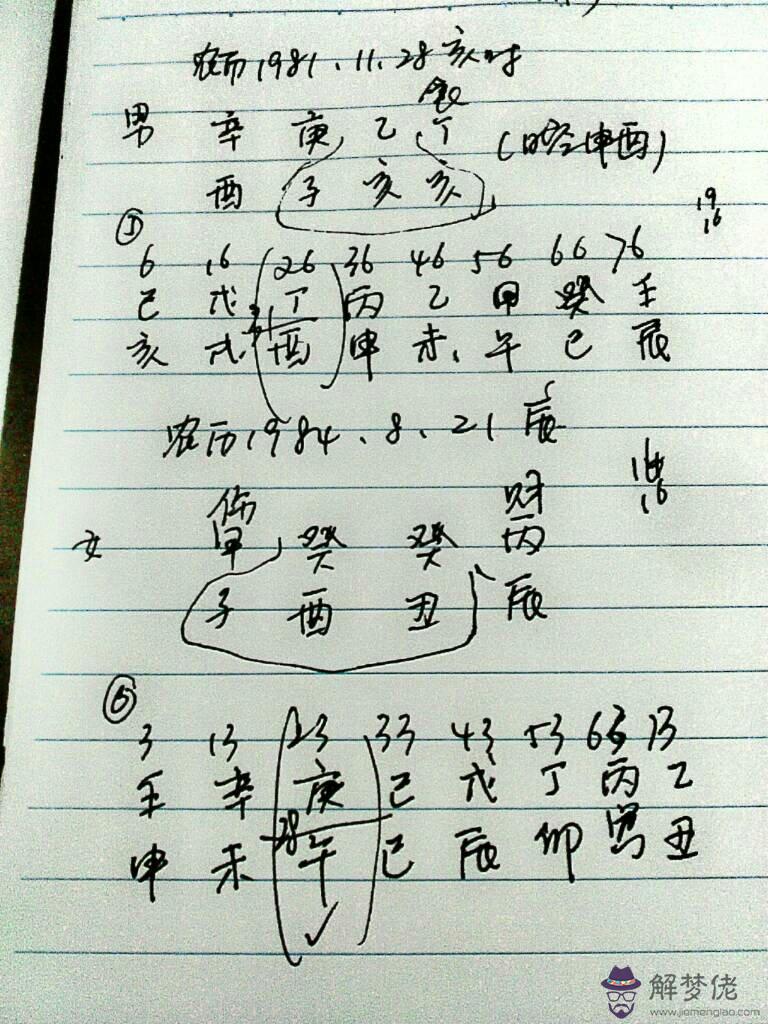 农历1981.11.28亥时
食
男 辛 庚 乙 丁 (时空申酉)
酉 子 亥 亥
① 19
16
6 16 26 36 46 56 66 76
己 戊 丁 丙 乙 甲 癸 壬
亥 戌 酉 申 未 午 巳 辰
农历1984.8.21辰
16
伤 财
女 甲 癸 癸 丙
子 酉 丑 辰
3 13 23 33 43 53 63 73
壬 辛 庚 己 戊 丁 丙 乙
申 未 28 午 巳 辰 卯 寅 丑
解梦佬
www.jiemenglao.com